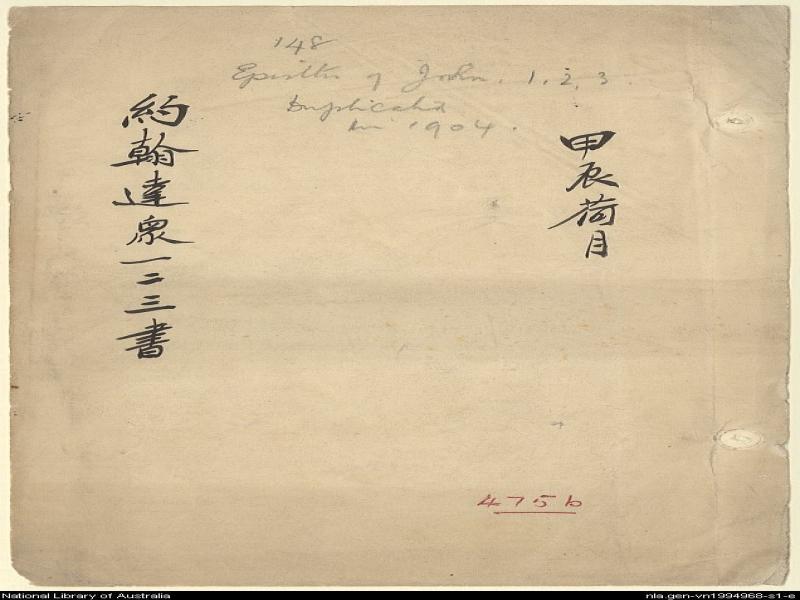 148
Epistles of John. 1, 2, 3.
Duplicated
in 1904.
甲辰荷月
約翰達眾一二三書
475b
National Library of Australia
nla.gen-vn1994968-s1-e